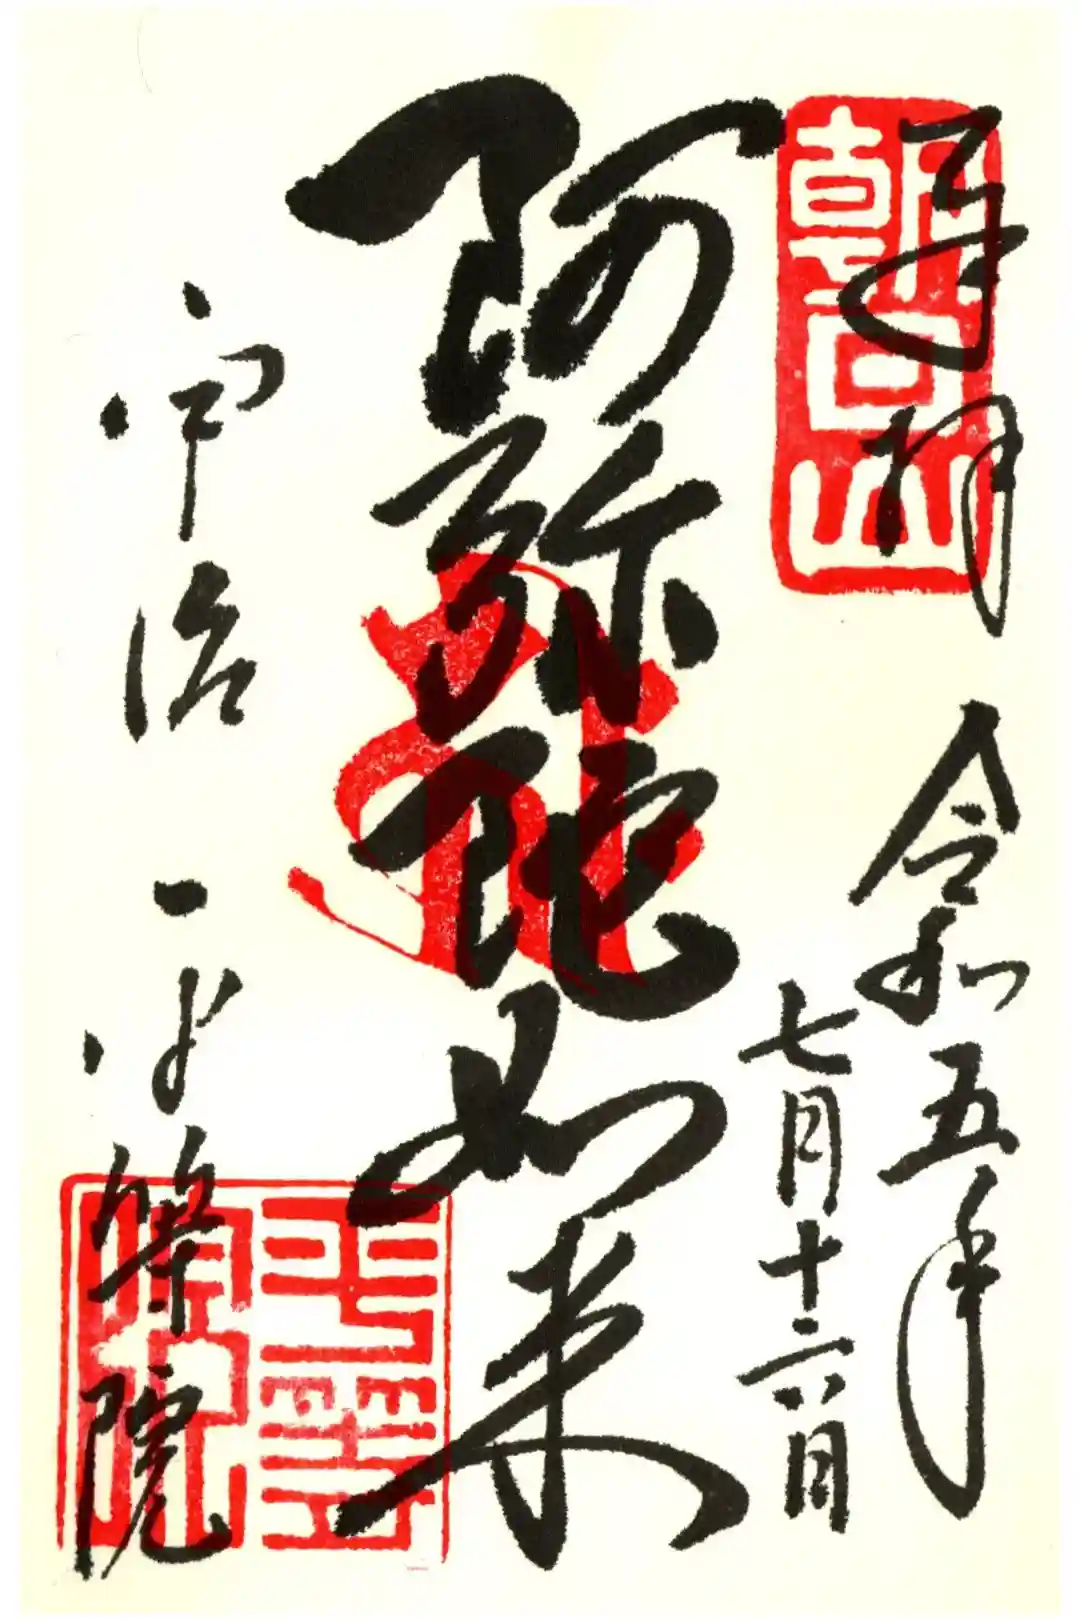 奉拝
令和五年
七月十六日
阿弥陀如来
宇治 平等院
朝日山
平等院